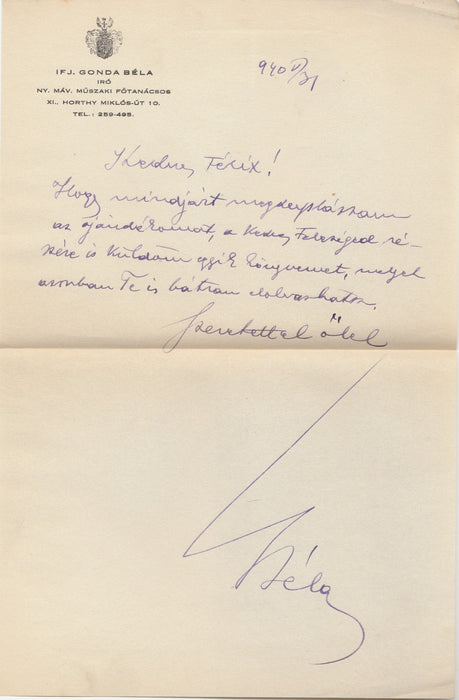 IFJ. GONDA BÉLA
IRÓ
NY. MÁV. MŰSZAKI FŐTANÁCSOS
XI., HORTHY MIKLÓS-ÚT 10.
TEL.: 259-495.
940 VI/21
Kedves Félix!
Hogy mindjárt megduplázzam
az ajándékomat, a Kedves Feleséged ré-
szére is küldöm egyik könyvemet, melyet
azonban Te is bátran elolvashatsz.
Szeretettel ölel
Béla